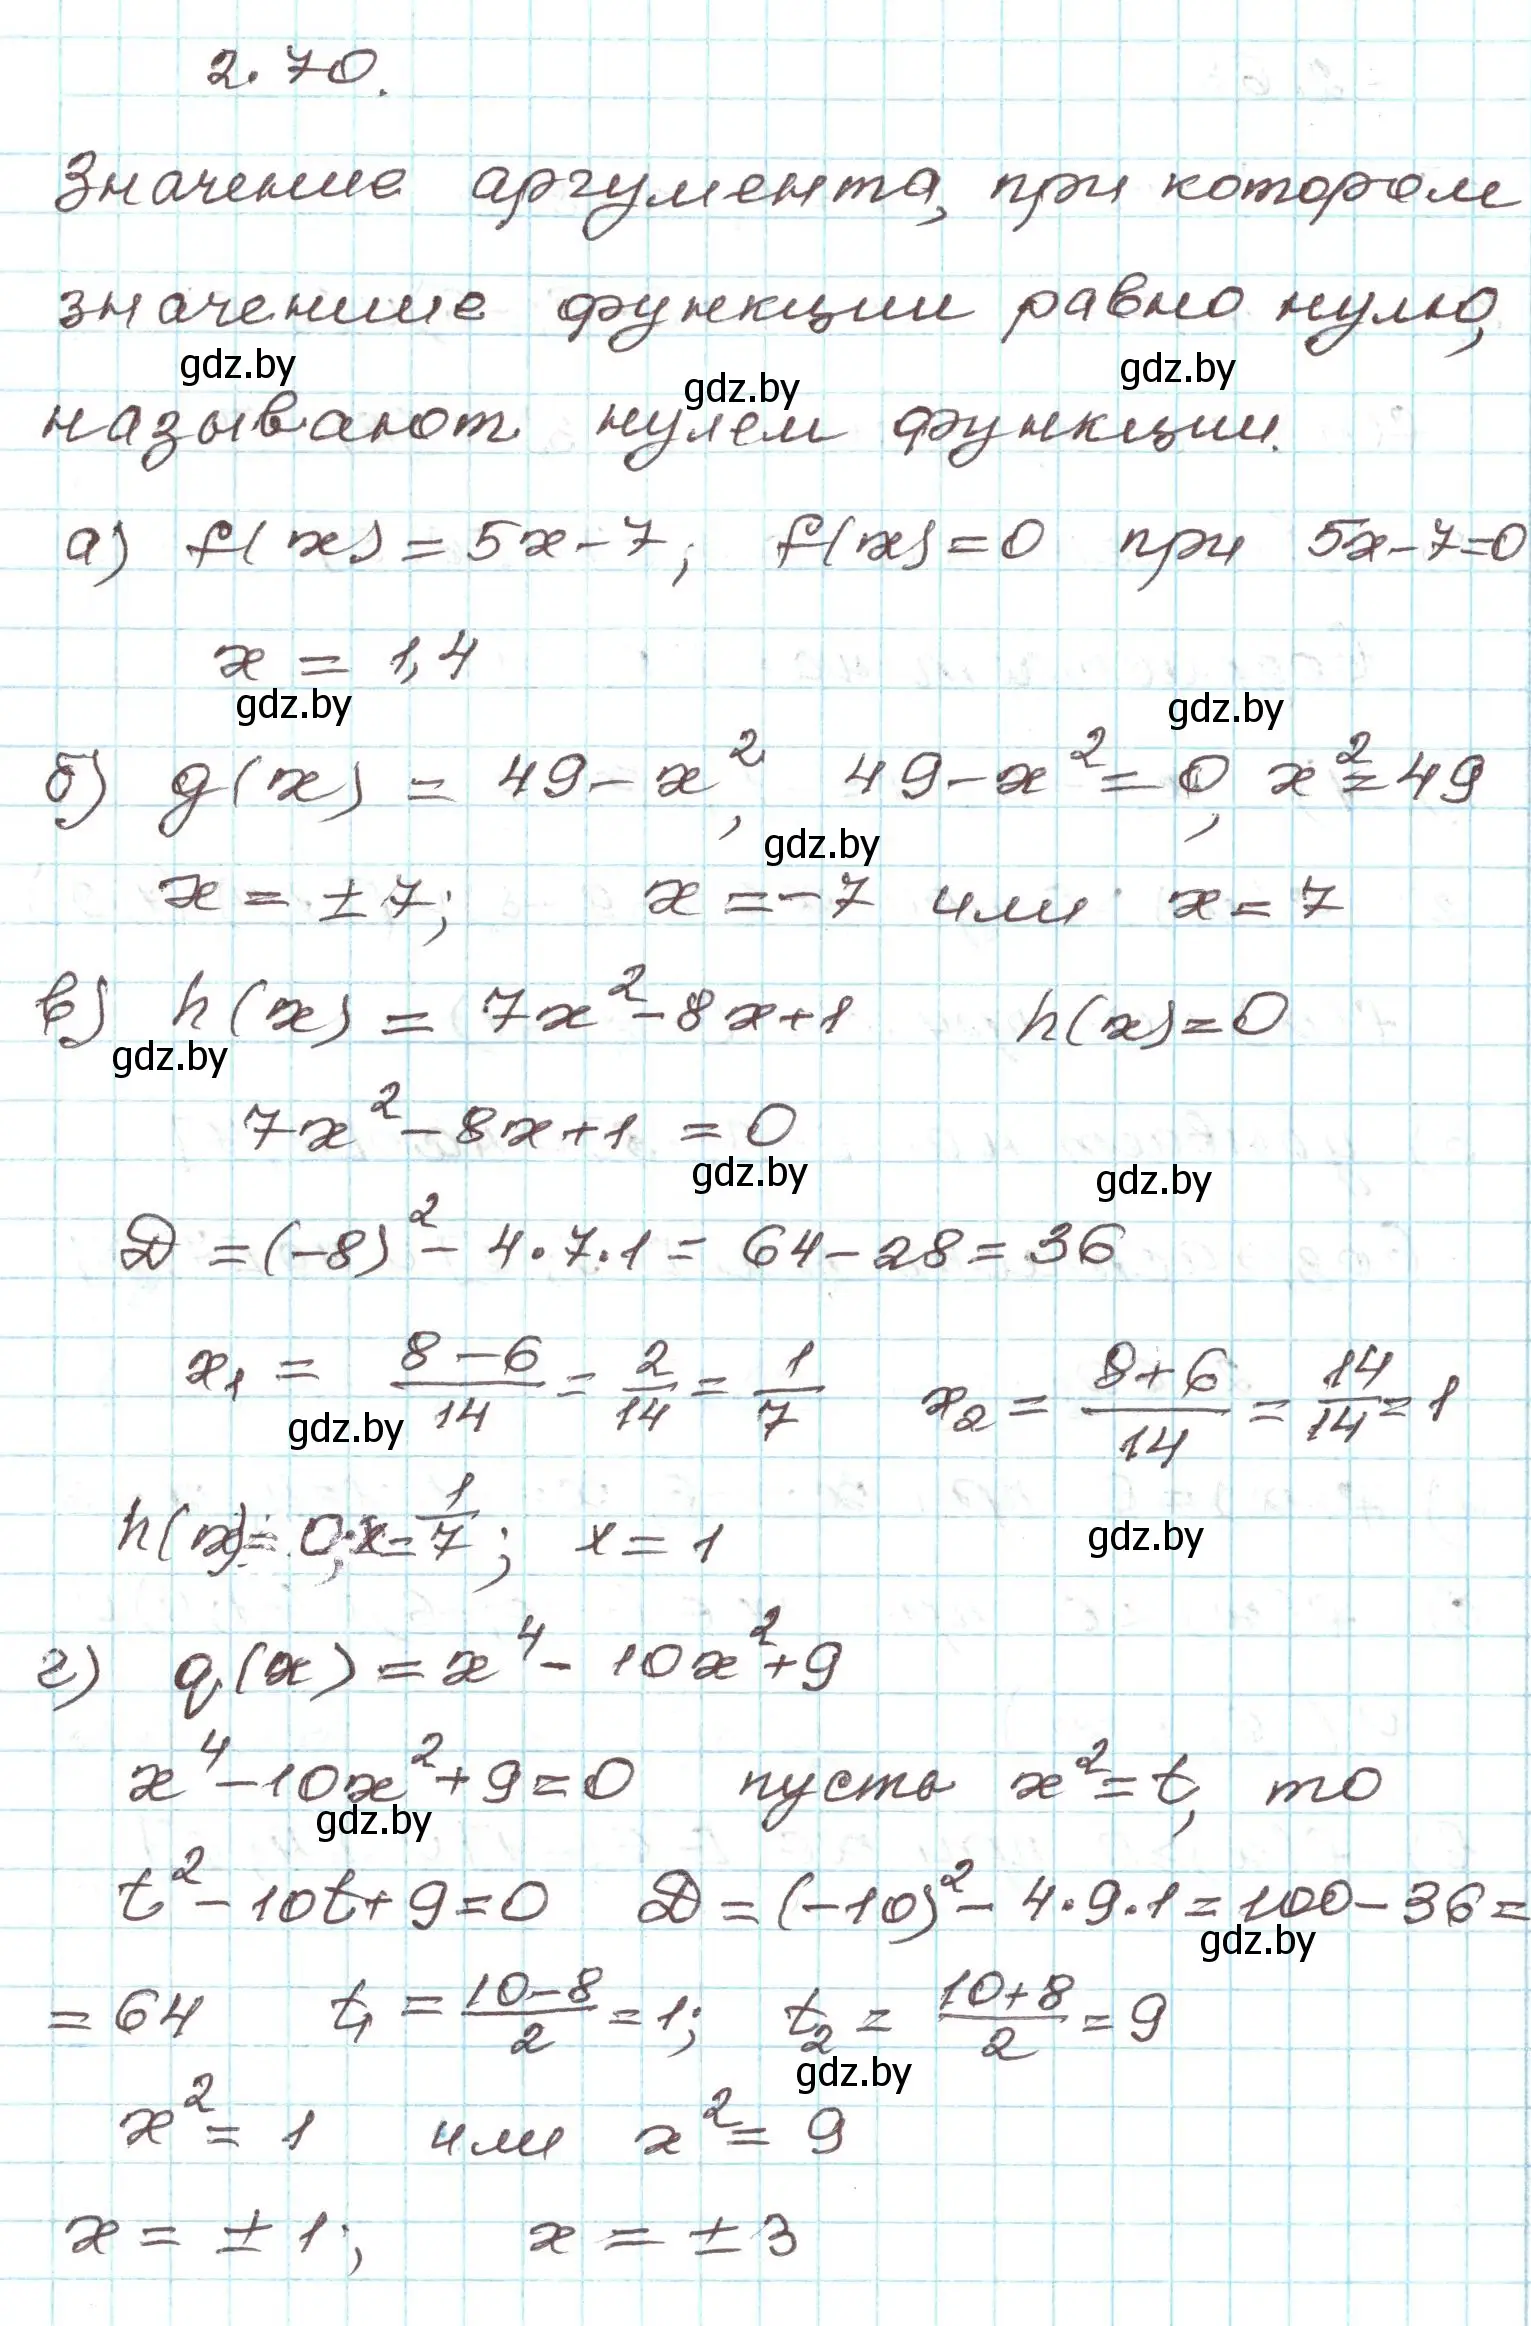 2.70.
Значение аргумента, при котором
значение функции равно нулю,
gdz.by gdz.by gdz.by
называют нулем функции.
а) f(x) = 5x - 7; f(x) = 0 при 5x - 7 = 0
x = 1,4
gdz.by gdz.by
б) g(x) = 49 - x², 49 - x² = 0, x² = 49
gdz.by
x = ± 7; x = -7 или x = 7
в) h(x) = 7x² - 8x + 1 h(x) = 0
gdz.by
7x² - 8x + 1 = 0
gdz.by gdz.by
D = (-8)² - 4 · 7 · 1 = 64 - 28 = 36
x₁ = (8 - 6)/14 = 2/14 = 1/7 x₂ = (8 + 6)/14 = 14/14 = 1
gdz.by
h(x) = 0; x = 1/7; x = 1
gdz.by
г) q(x) = x⁴ - 10x² + 9
x⁴ - 10x² + 9 = 0 пусть x² = t, то
gdz.by
t² - 10t + 9 = 0 D = (-10)² - 4 · 9 · 1 = 100 - 36 =
gdz.by
= 64 t₁ = (10 - 8)/2 = 1; t₂ = (10 + 8)/2 = 9
gdz.by
x² = 1 или x² = 9
x = ± 1; x = ± 3